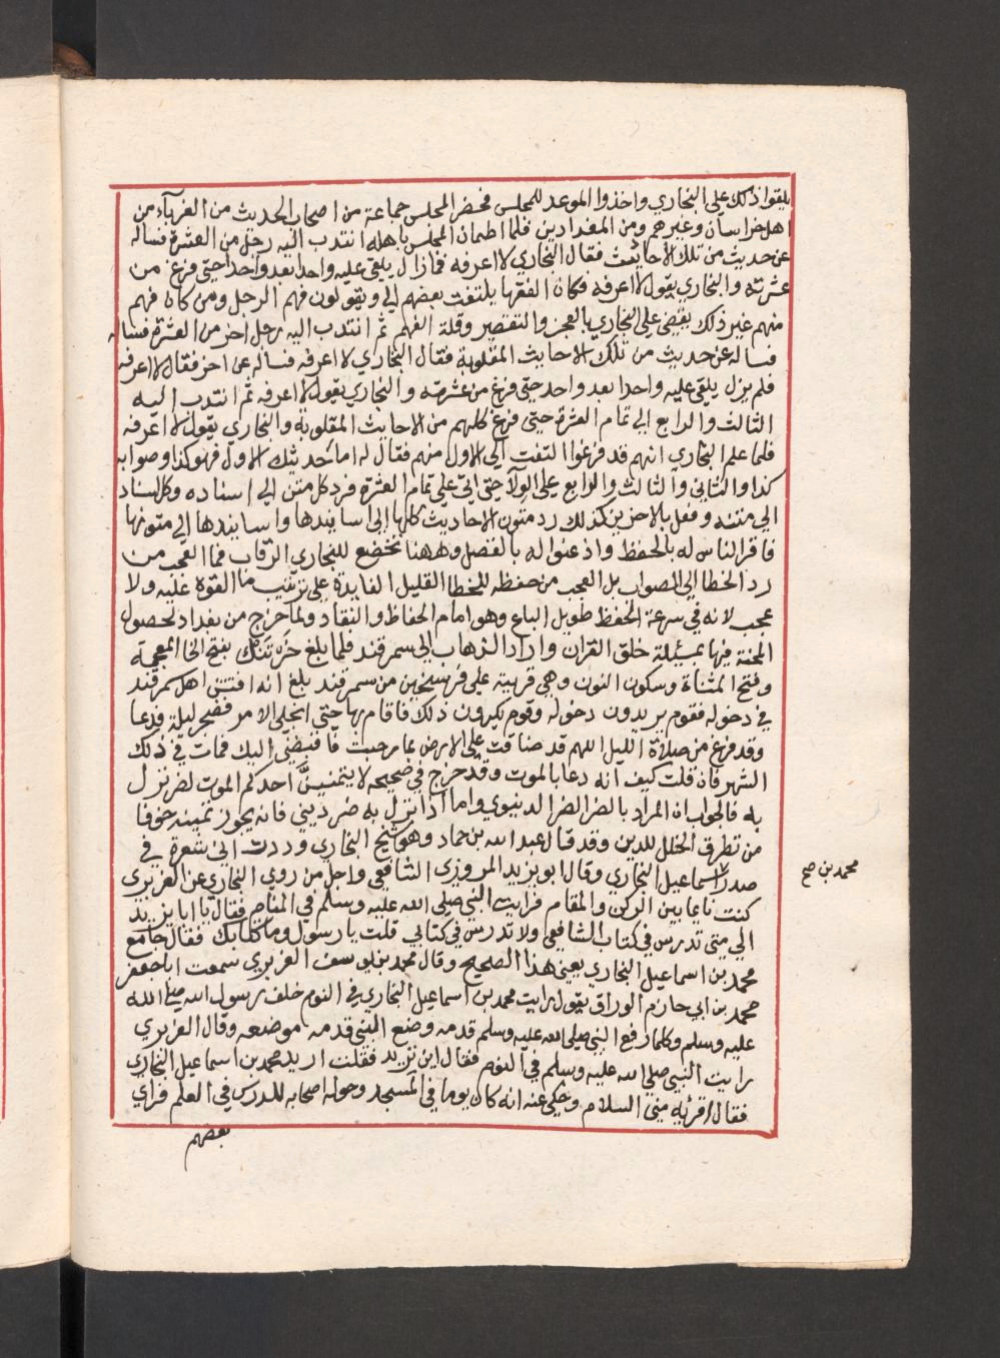 يلقوا ذلك علي البخاري واخذوا الموعد للمجلس فحضر المجلس جماعة من اصحاب الحديث من الغربآء من
اهل خراسان وغيرهم ومن البغدادين فلما اطمان المجلس باهله انتدب اليه رجل من العشرة فساله
عن حديث من تلك الاحاديث فقال البخاري لا اعرفه فما زال يلقي عليه واحدا بعد واحد حتي فرغ من
عشرته والبخاري يقول لا اعرفه فكان الفقها يلتفت بعضهم الي ويقولون فهم الرجل ومن كان فهم
منهم غير ذلك يقضي علي البخاري بالعجز والتقصير وقلة الفهم ثم انتدب اليه رجل اخر من العشرة فساله
فساله عن حديث من تلك الاحاديث المقلوبة فقال البخاري لا اعرفه فساله عن اخر فقال لا اعرفه
فلم يزل يلقي عليه واحدا بعد واحد حتي فرغ من عشرته والبخاري يقول لا اعرفه ثم انتدب اليه
الثالث والرابع الي تمام العشرة حتي فرغ كلهم من الاحاديث المقلوبة والبخاري يقول لا اعرفه
فلما علم البخاري انهم قد فرغوا التفت الي الاول منهم فقال له اما حديثك الاول فهو كذا وصوابه
كذا والثاني والثالث والرابع علي الولآ حتي اتي علي تمام العشرة فرد كل متن الي اسناده وكل اسناد
الي متنه وفعل بالاخرين كذلك رد متون الاحاديث كلها الي اسانيدها واسانيدها الي متونها
فاقر الناس له بالحفظ واذعنوا له بالفضل وههنا تخضع للبخاري الرقاب فما العجب من
رد الخطا الي الصواب بل العجب من حفظه للخطا القليل الفايدة علي ترتيب ما القوه عليه ولا
عجب لانه في سرعة الحفظ طويل الباع وهو امام الحفاظ والنقاد ولما خرج من بغداد لحصول
المحنة فيها بمسئلة خلق القران واراد الذهاب الي سمرقند فلما بلغ خَرتَنك بفتح الخا المعجمة
وفتح المثناة وسكون النون وهي قرية علي فرسخين من سمرقند بلغ انه افتتن اهل سمرقند
في دخوله فقوم يريدون دخوله وقوم يكرون ذلك فاقام بها حتي انجلي الامر فضجر ليلة فدعا
وقد فرغ من صلاة الليل اللهم قد ضاقت علي الارض بما رحبت فاقبضني اليك فمات في ذلك
الشهر فان قلت كيف انه دعا بالموت وقد خرج في صحيحه لا يتمنينَّ احدكم الموت لضر نزل
به فالجواب ان المراد بالضر الضر الدنيوي واما اذا نزل به ضر ديني فانه يجوز تمنيه خوفا
من تطرق الخلل للدين وقد قال عبد الله بن حماد وهو شيخ البخاري وددت اني شعرة في
صدر اسماعيل البخاري وقال ابو يزيد المروزي الشافعي واجل من روي البخاري عن الفربري
محمد بن صح
كنت نايما بين الركن والمقام فرايت النبي صلي الله عليه وسلم في المنام فقال يا ابا يزيد
الي متي تدرس في كتاب الشافعي ولا تدرس في كتابي قلت يا رسول وما كتابك فقال جامع
محمد بن اسماعيل البخاري يعني هذا الصحيح وقال محمد بن يوسف الفربري سمعت ابا جعفر
محمد بن ابي حازم الوراق يقول رايت محمد بن اسماعيل البخاري في النوم خلف رسول الله صلي الله
عليه وسلم وكلما رفع النبي صلي الله عليه وسلم قدمه وضع البني قدمه موضعه وقال الفربري
رايت النبي صلي الله عليه وسلم في النوم فقال اين تريد فقلت اريد محمد بن اسماعيل البخاري
فقال اقرئه مني السلام وحكي عنه انه كان يوما في المسجد وحوله اصحابه للدرس في العلم فراي
بعضهم